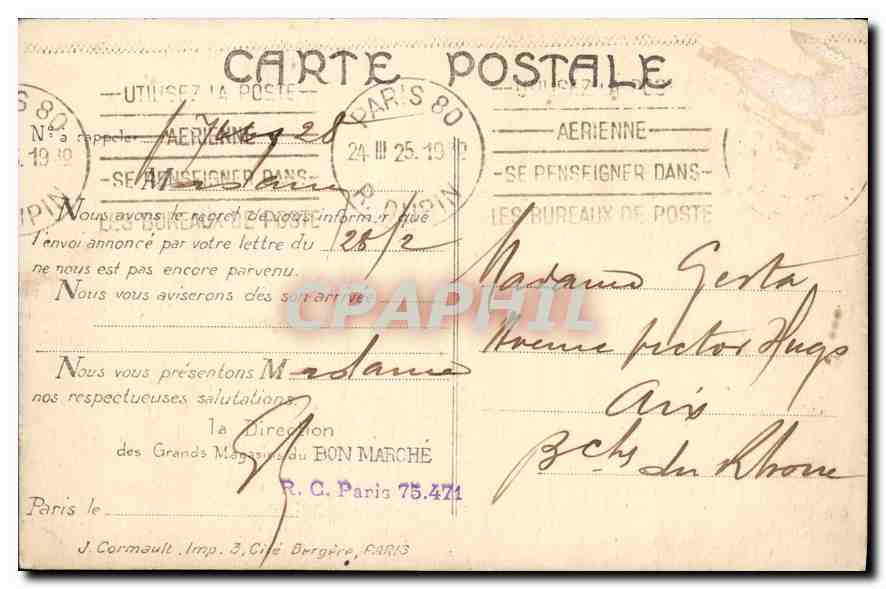 CARTE POSTALE
UTILISEZ LA POSTE
AERIENNE
SE RENSEIGNER DANS
LES BUREAUX DE POSTE
PARIS 80
24 III 25. 19
R. DUPIN
LA POSTE
AERIENNE
SE RENSEIGNER DANS
LES BUREAUX DE POSTE
S 80
19
DUPIN
N° à rappeler
Madame
Nous avons le regret de vous informer que
l'envoi annoncé par votre lettre du 28/2
ne nous est pas encore parvenu.
Nous vous aviserons dès son arrivée
Nous vous présentons Madame
nos respectueuses salutations.
la Direction
des Grands Magasins du BON MARCHÉ
R. C. Paris 75.471
Paris le
J. Cormault, Imp. 3, Cité Bergère, PARIS
Madame Gerta
Avenue Victor Hugo
Aix
Bches du Rhone
CPAPHIL